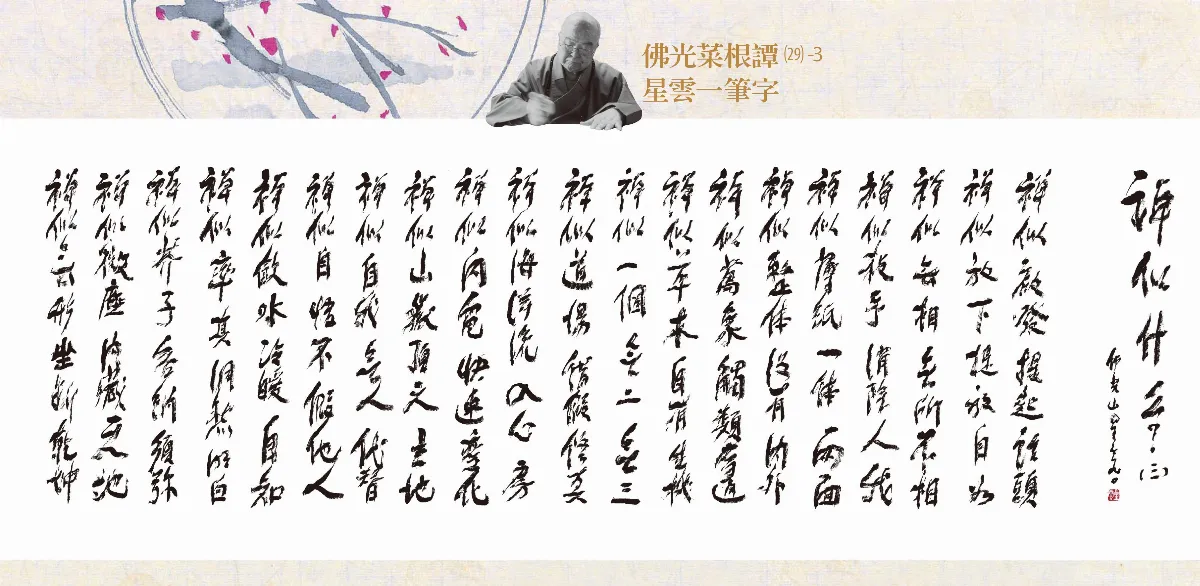 佛光菜根譚(29)-3
星雲一筆字
禪似什么？(三)
佛光山星雲
禪似啟發 提起話頭
禪似放下 提放自如
禪似無相 無所不相
禪似 消除人我
禪似薄紙 一体两面
禪似整体 没有内外
禪似萬象 觸類旁通
禪似草木 自有生機
禪似一個 無二無三
禪似道場 借假修真
禪似海洋 流入心房
禪似闪電 快速變化
禪似山嶽 頂天立地
禪似自我 無人代替
禪似自悟 不假他人
禪似飲水 冷暖自知
禪似率真 洞然明白
禪似芥子 容納須弥
禪似微塵 藏天地
禪似無形 坐斷乾坤